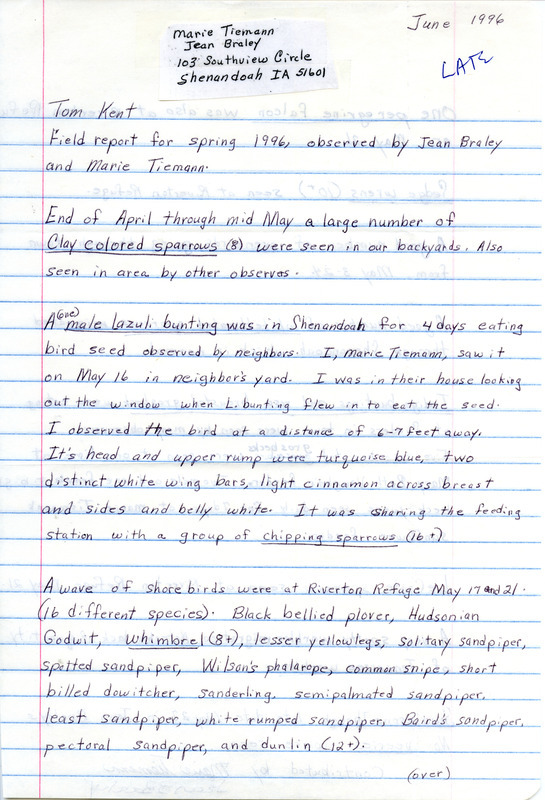 June 1996
Marie Tiemann
Jean Braley
103 Southview Circle
Shenandoah IA 51601
LATE
Tom Kent
Field report for spring 1996, observed by Jean Braley
and Marie Tiemann.
End of April through mid May a large number of
Clay colored sparrows (8) were seen in our backyards. Also
seen in area by other observes.
A (one) male Lazuli bunting was in Shenandoah for 4 days eating
bird seed observed by neighbors. I, Marie Tiemann, saw it
on May 16 in neighbor's yard. I was in their house looking
out the window when L. bunting flew in to eat the seed.
I observed the bird at a distance of 6-7 feet away.
It's head and upper rump were turquoise blue, two
distinct white wing bars, light cinnamon across breast
and sides and belly white. It was sharing the feeding
station with a group of chipping sparrows (16+)
A wave of shore birds were at Riverton Refuge May 17 and 21.
(16 different species). Black bellied plover, Hudsonian
Godwit, whimbrel (8+), lesser yellowlegs, solitary sandpiper,
spotted sandpiper, Wilson's phalarope, common snipe, short
billed dowitcher, sanderling, semipalmated sandpiper,
least sandpiper, white rumped sandpiper, Baird's sandpiper,
pectoral sandpiper, and dunlin (12+).
(over)